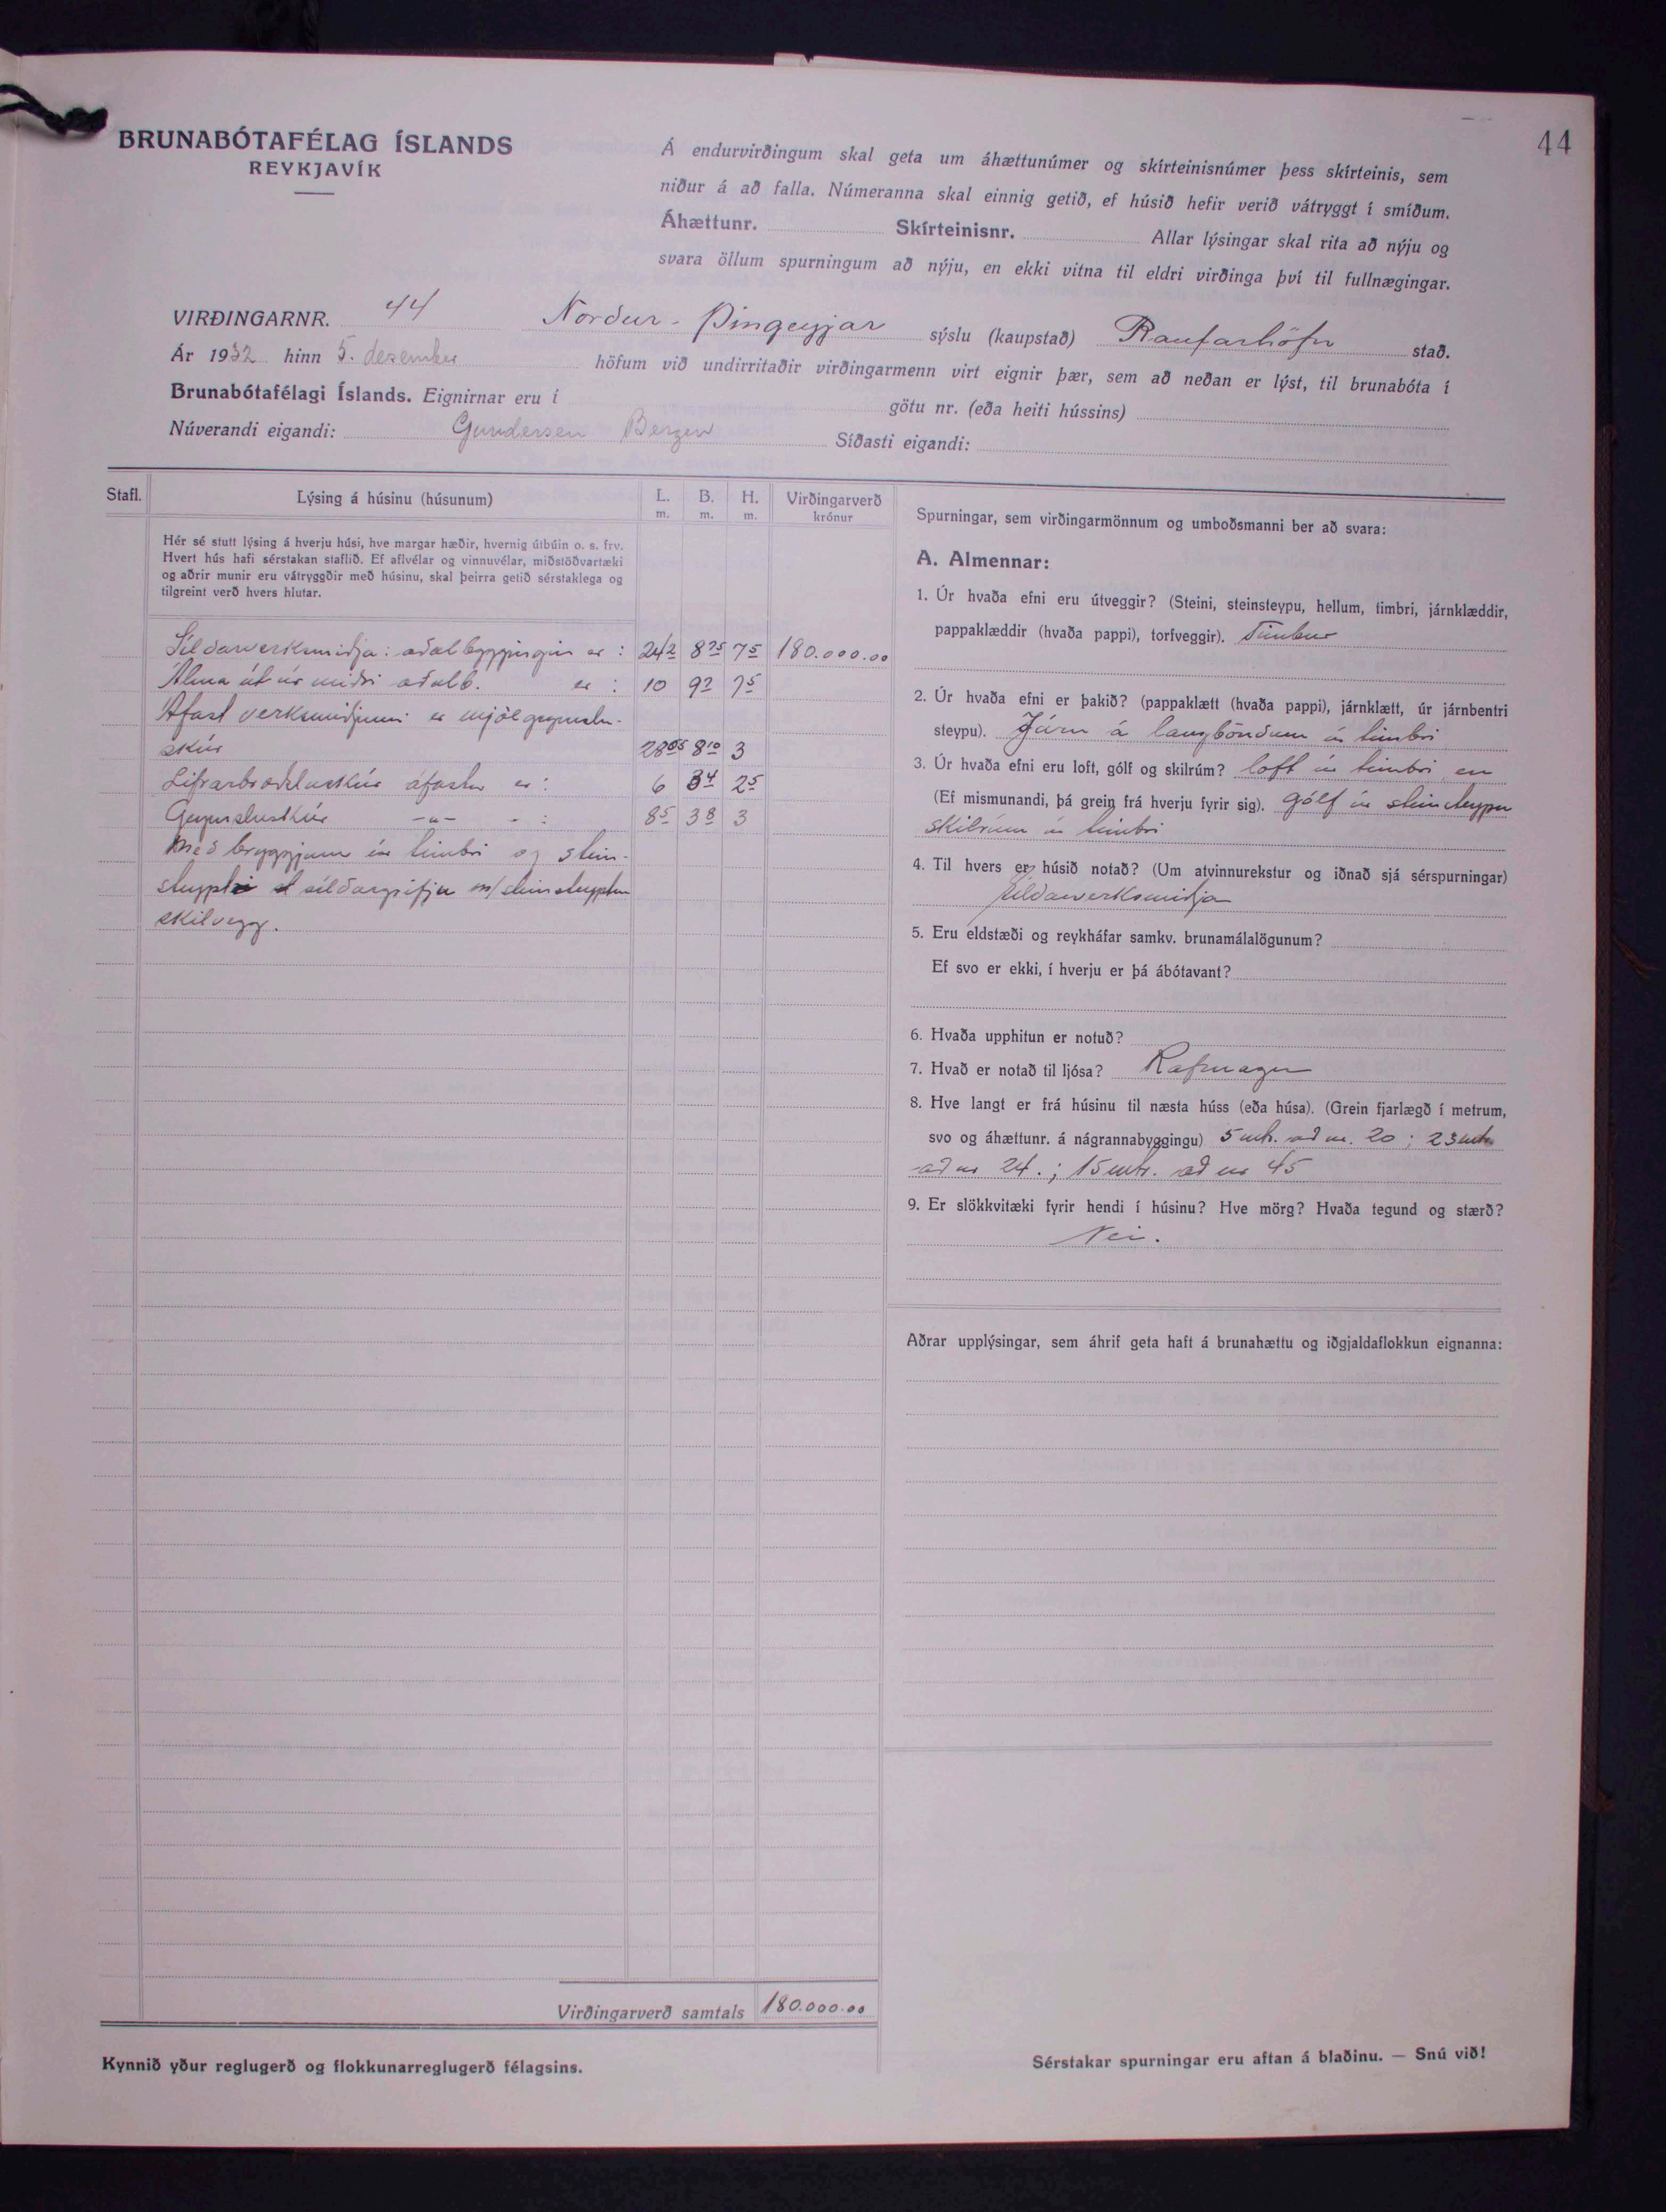 44
BRUNABÓTAFÉLAG ÍSLANDS
REYKJAVÍK
Á endurvirðingum skal geta um áhættunúmer og skírteinisnúmer þess skírteinis, sem
niður á að falla. Númeranna skal einnig getið, ef húsið hefir verið vátryggt í smíðum.
Áhættunr. Skírteinisnr. Allar lýsingar skal rita að nýju og
svara öllum spurningum að nýju, en ekki vitna til eldri virðinga því til fullnægingar.
VIRÐINGARNR. 44 Norður-Þingeyjar sýslu (kaupstað) Raufarhöfn stað.
Ár 1932 hinn 5. dezember höfum við undirritaðir virðingarmenn virt eignir þær, sem að neðan er lýst, til brunabóta í
Brunabótafélagi Íslands. Eignirnar eru í götu nr. (eða heiti hússins)
Núverandi eigandi: Gundersen Bergen Síðasti eigandi:
Stafl. Lýsing á húsinu (húsunum) L. m. B. m. H. m. Virðingarverð krónur
Hér sé stutt lýsing á hverju húsi, hve margar hæðir, hvernig útbúin o. s. frv.
Hvert hús hafi sérstakan staflið. Ef aflvélar og vinnuvélar, miðstöðvartæki
og aðrir munir eru vátryggðir með húsinu, skal þeirra getið sérstaklega og
tilgreint verð hvers hlutar.
Síldarverksmiðja: aðalbyggingin er: 242 875 75 180.000.00
Álma út úr miðri aðalb. er: 10 92 75
Áfast verksmiðjunni er mjölgeymslu-
skúr 2805 810 3
Lifrarbræðsluskúr áfastur er: 6 34 25
Geymsluskúr -"- - : 85 38 3
Með bryggjum úr timbri og stein-
steyptri síldarþró m/steinsteyptum
skilvegg.
Virðingarverð samtals 180.000.00
Kynnið yður reglugerð og flokkunarreglugerð félagsins.
Spurningar, sem virðingarmönnum og umboðsmanni ber að svara:
A. Almennar:
1. Úr hvaða efni eru útveggir? (Steini, steinsteypu, hellum, timbri, járnklæddir,
pappaklæddir (hvaða pappi), torfveggir). Timbur
2. Úr hvaða efni er þakið? (pappaklætt (hvaða pappi), járnklætt, úr járnbentri
steypu). Járn á langböndum úr timbri
3. Úr hvaða efni eru loft, gólf og skilrúm? loft úr timbri en
(Ef mismunandi, þá grein frá hverju fyrir sig). gólf úr steinsteypu
skilrúm úr timbri
4. Til hvers er húsið notað? (Um atvinnurekstur og iðnað sjá sérspurningar)
Síldarverksmiðja
5. Eru eldstæði og reykháfar samkv. brunamálalögunum?
Ef svo er ekki, í hverju er þá ábótavant?
6. Hvaða upphitun er notuð?
7. Hvað er notað til ljósa? Rafmagn
8. Hve langt er frá húsinu til næsta húss (eða húsa). (Grein fjarlægð í metrum,
svo og áhættunr. á nágrannabyggingu) 5 mtr. að nr. 20; 23 mtr.
að nr 24.; 15 mtr. að nr 45
9. Er slökkvitæki fyrir hendi í húsinu? Hve mörg? Hvaða tegund og stærð?
Nei.
Aðrar upplýsingar, sem áhrif geta haft á brunahættu og iðgjaldaflokkun eignanna:
Sérstakar spurningar eru aftan á blaðinu. — Snú við!